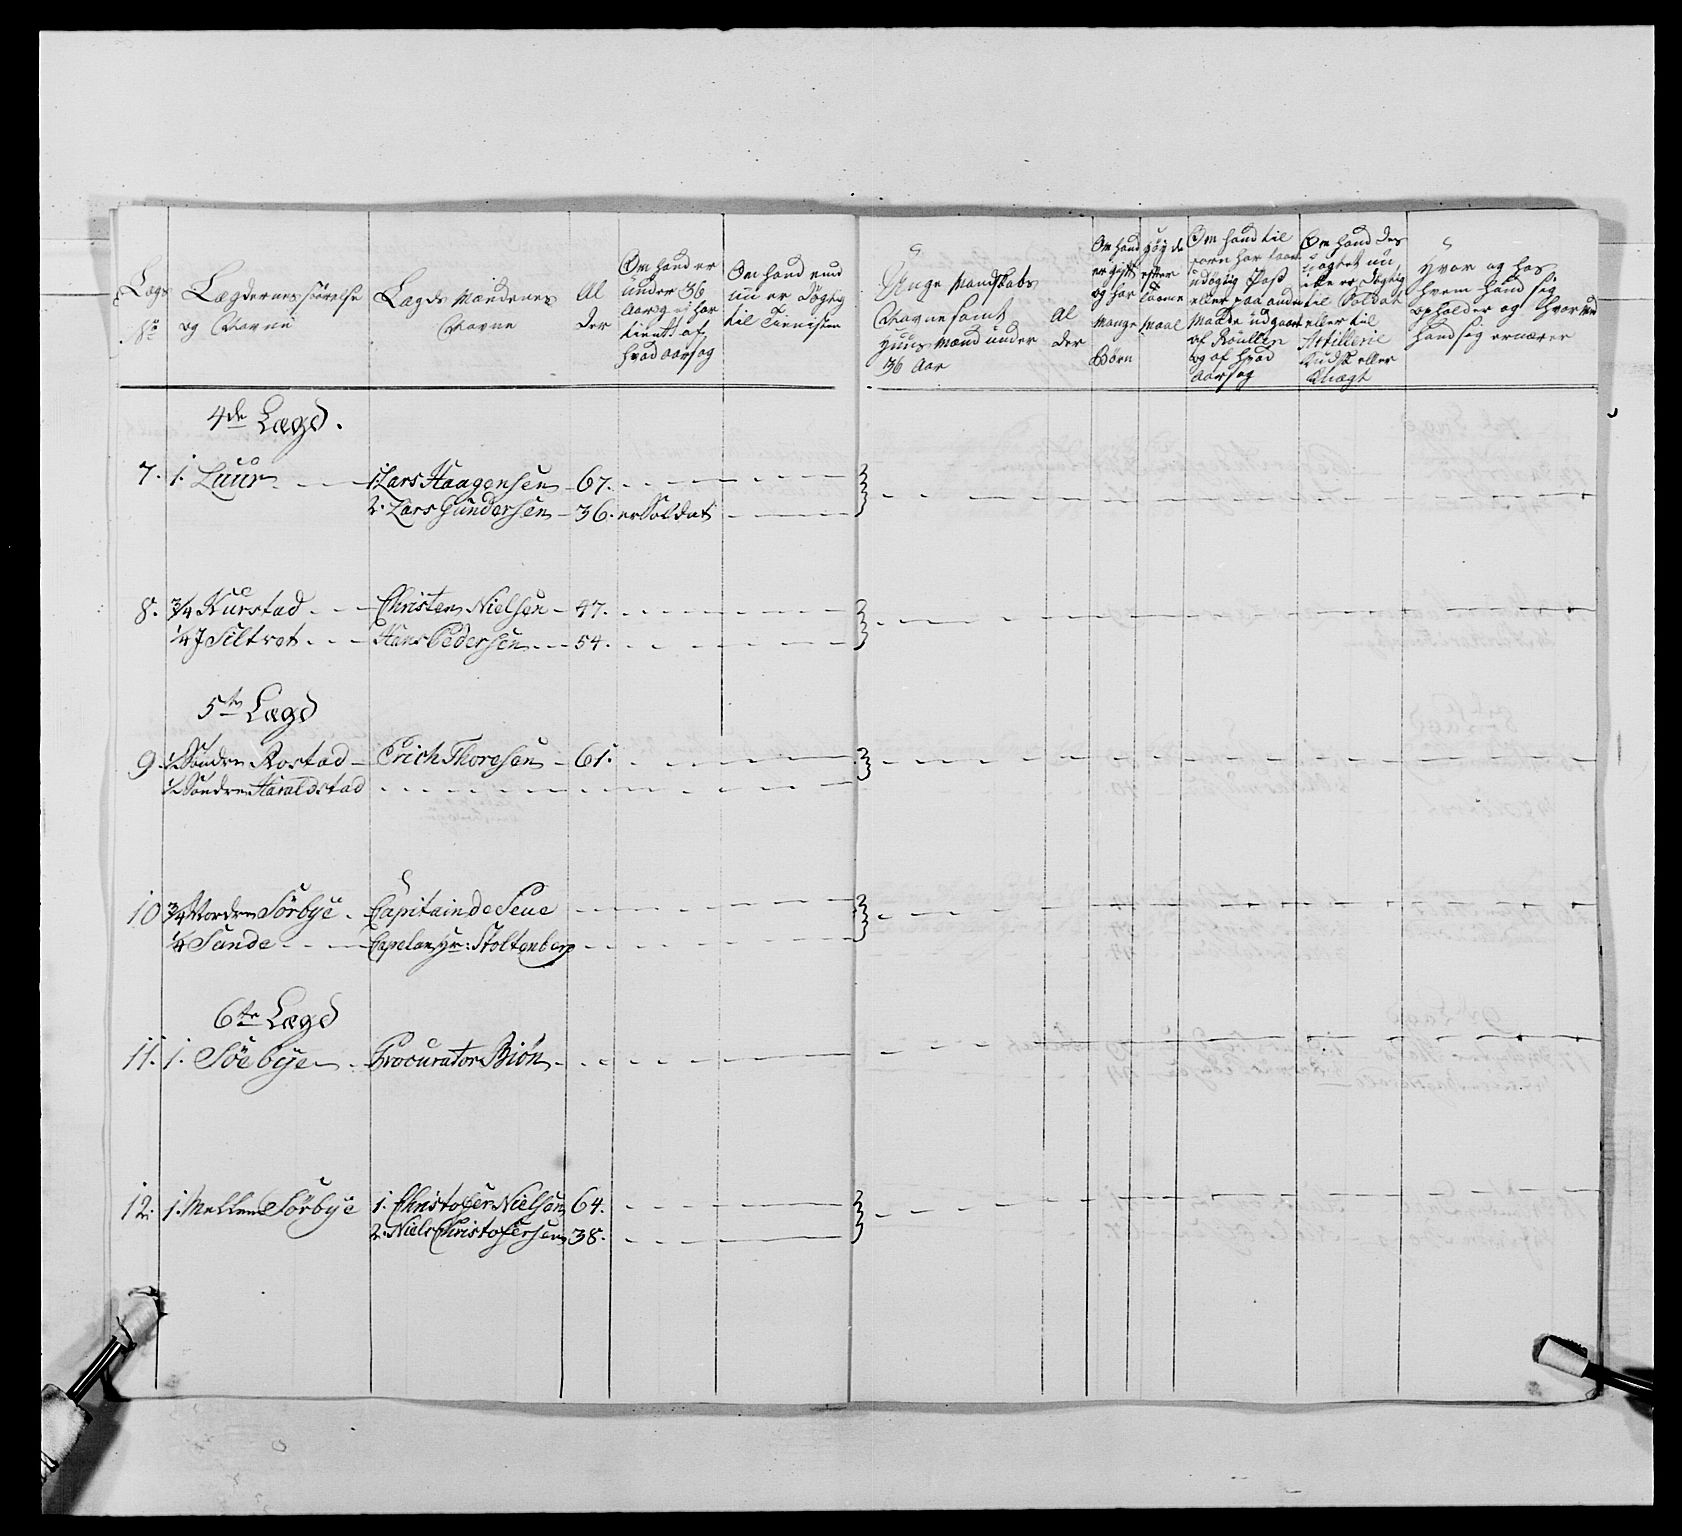 Lægs No
Lægdernes störelse og Navne
Lægds Mændenes Navne
Al der
Om hand er under 36 Aar og ei har tient af hvad aarsag
Om hand end nu er dögtig til Tienisten
Unge Mandskabs Navne samt Huus Mænd under 36 Aar
Al der
Om hand er gift og har Mange Börn
höyde efter Maal
Om hand til forn har udögtig Pass eller paa anden Maade udgaaet af Roullen og af hvad Aarsag
Om hand des uagtet nu ikke er dögtig til Soldat eller til Artillerie Kudsk eller
Hvor og hos hvem hand sig opholder og hvor ved hand sig ernærer
4de Lægd.
7. 1. Luur 1. Lars Haagensen 67.
2. Lars Gundersen 36. er Soldat
8. 3/4 Kurstad Christen Nielsen 47.
1/4 Siltvet Hans Pedersen 54.
5te Lægd
9. 1/2 Söndre Rostad Erich Thoresen 61.
1/2 Söndre Haraldstad
10 3/4 Nordre Sörbye Capitain de Seue
1/4 Sande Capelan Hr: Stoltenberg
6te Lægd
11. 1. Söebye Procurator Biön
12. 1. Mellem Sörbye 1. Christofer Nielsen 64.
2. Niels Christofersen 38.